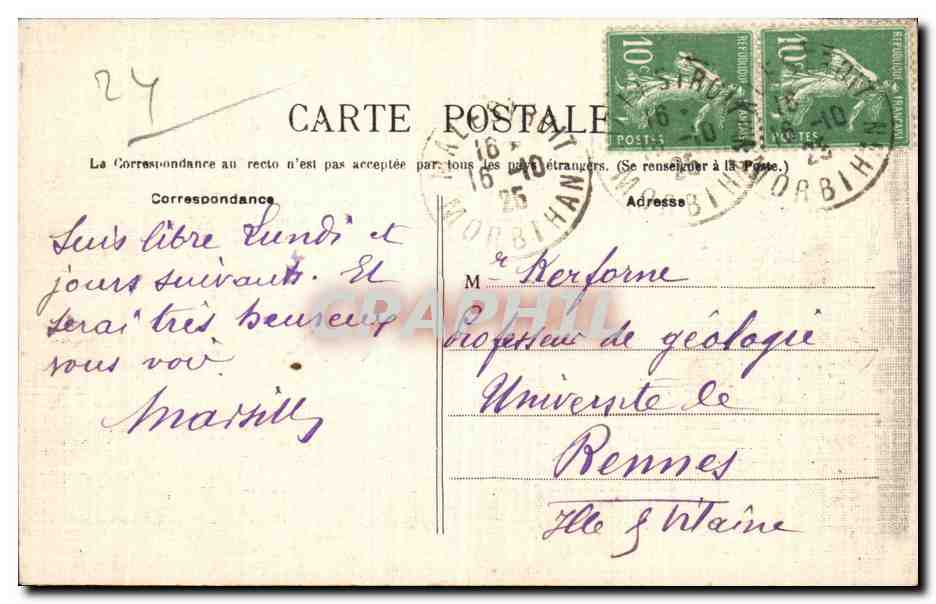 24
10c
RÉPUBLIQUE FRANÇAISE
POSTES
10c
RÉPUBLIQUE FRANÇAISE
POSTES
CARTE POSTALE
MALESTROIT
16 -
16 -10
25
MORBIHAN
La Correspondance au recto n'est pas acceptée par tous les pays étrangers. (Se renseigner à la Poste.)
Correspondance
Adresse
Suis libre Lundi et
jours suivants. Et
serai très heureux
vous voir
Marsille
Mr Kerforne
Professeur de géologie
Université de
Rennes
Ille & Vilaine
GRAPHIL